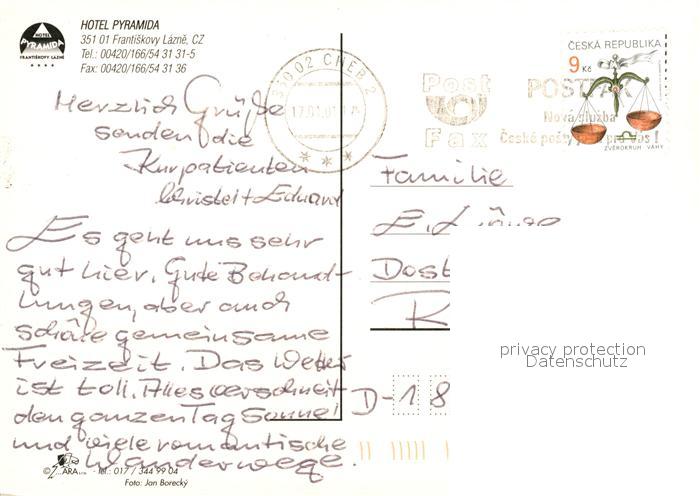 HOTEL PYRAMIDA
351 01 Františkovy Lázně, CZ
Tel.: 00420/166/54 31 31-5
Fax: 00420/166/54 31 36
HOTEL
PYRAMIDA
FRANTIŠKOVY LÁZNĚ
****
Herzlich Grüße
senden die
Kurpatienten
Christel + Eduard
Es geht uns sehr
gut hier. Gute Behand-
lungen, aber auch
schöne gemeinsame
Freizeit. Das Wetter
ist toll. Alles verschneit
den ganzen Tag Sonne!
und viele romantische
Wanderwege.
350 02 CHEB 2
Post
Fax
POSTFAX
Nová služba
České pošty pro Vás!
ČESKÁ REPUBLIKA
9 Kč
ZVĚROKRUH VÁHY
Familie
D-18
privacy protection
Datenschutz
ARA Tel.: 017 / 344 99 04
Foto: Jan Borecký